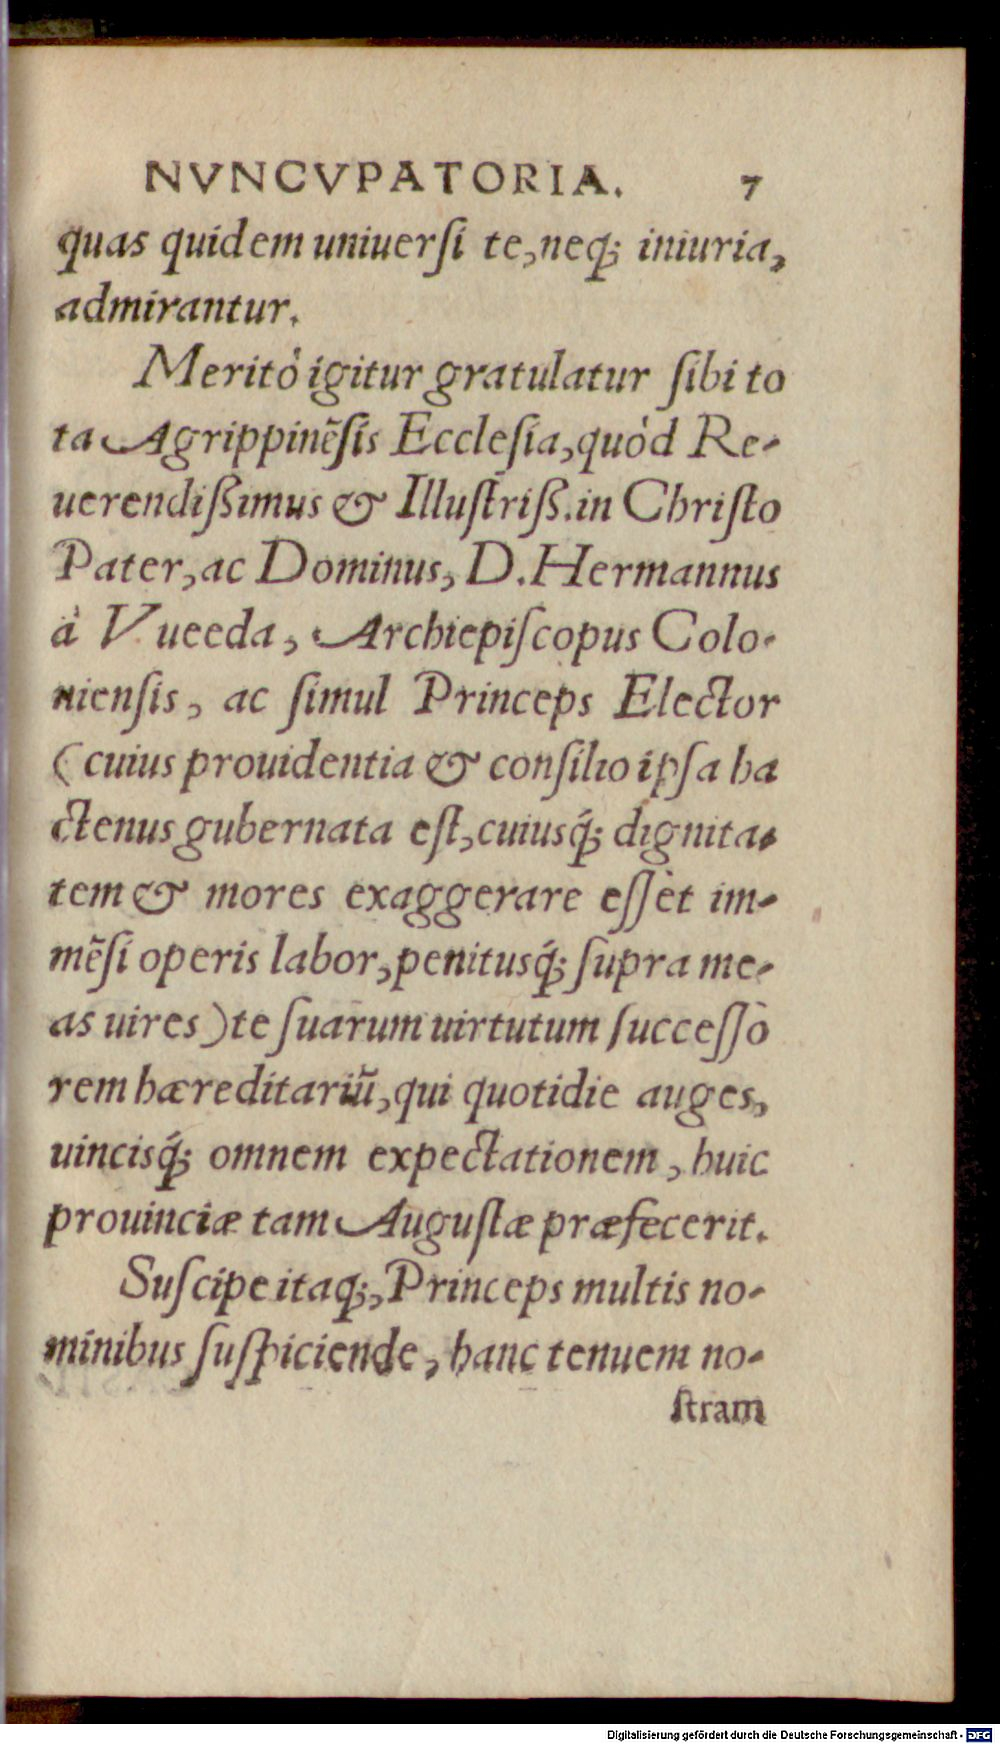 NVNCVPATORIA. 7
quas quidem uniuerſi te, neq; iniuria,
admirantur.
Meritò igitur gratulatur ſibi to
ta Agrippinẽſis Eccleſia, quòd Re-
uerendiſſimus & Illuſtriſſ. in Chriſto
Pater, ac Dominus, D. Hermannus
à Vueeda, Archiepiſcopus Colo-
nienſis, ac ſimul Princeps Elector
(cuius prouidentia & conſilio ipſa ha
ctenus gubernata eſt, cuiusq́; dignita-
tem & mores exaggerare eſſet im-
mẽſi operis labor, penitusq́; ſupra me-
as uires) te ſuarum uirtutum ſucceſſo
rem hæreditariũ, qui quotidie auges,
uincisq́; omnem expectationem, huic
prouinciæ tam Auguſtæ præfecerit.
Suſcipe itaq;, Princeps multis no-
minibus ſuſpiciende, hanc tenuem no-
ſtram
Digitalisierung gefördert durch die Deutsche Forschungsgemeinschaft - DFG